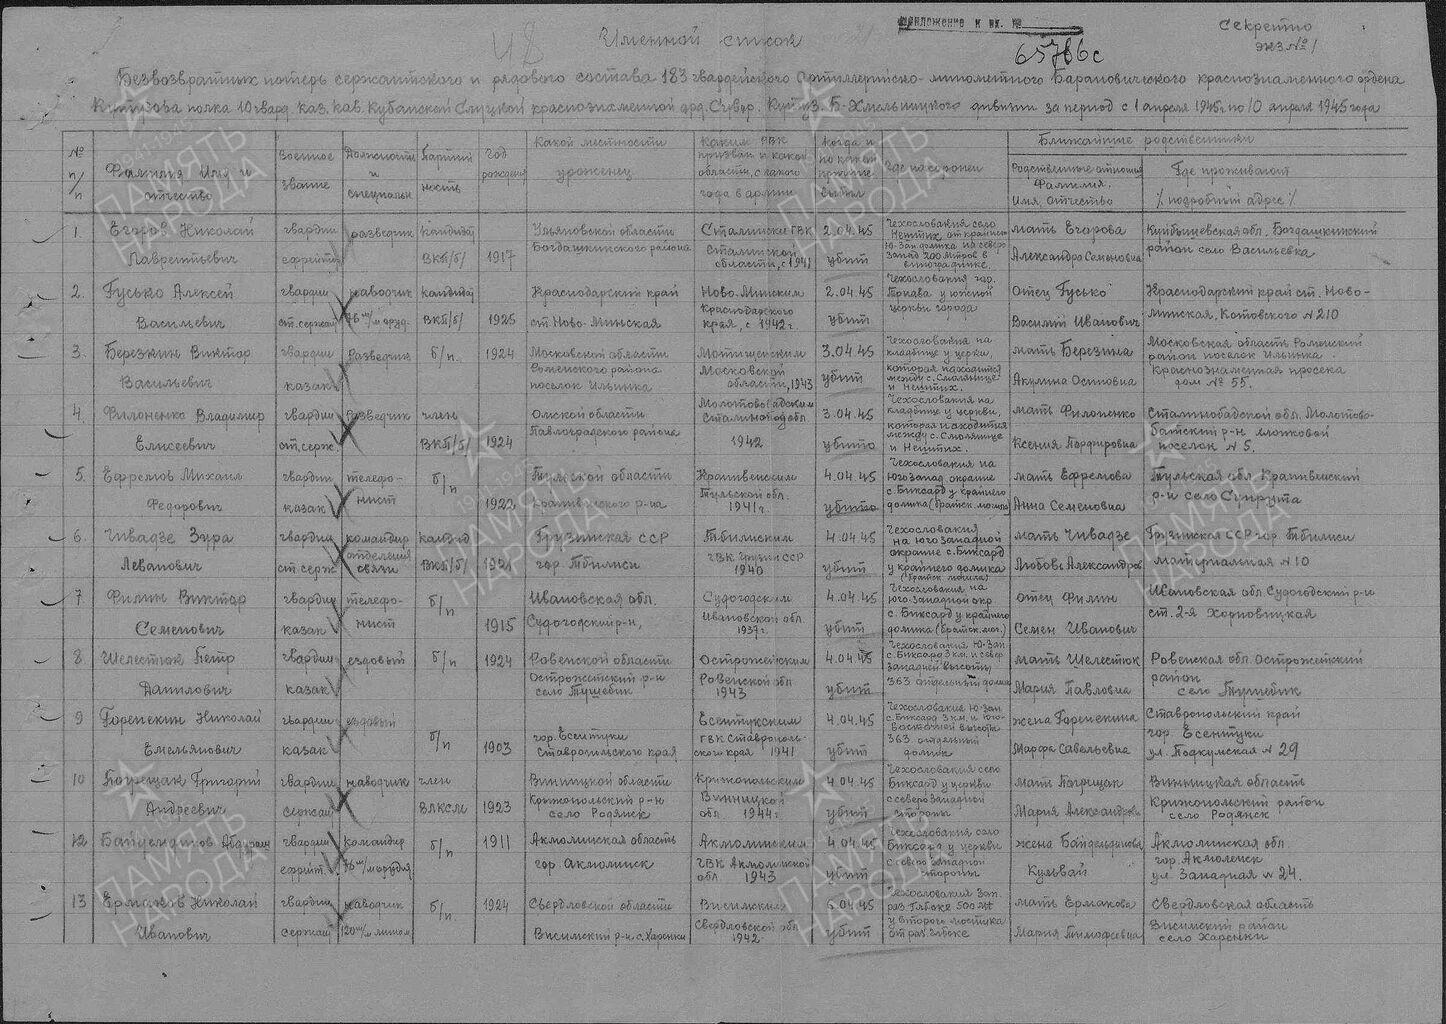 Приложение к вх. №
65786с
Секретно
экз № 1
Именной список
Безвозвратных потерь сержантского и рядового состава 183 гвардейского Артиллерийско-минометного Барановического краснознаменного ордена
Кутузова полка 10 гвард. каз. кав. Кубанской Слуцкой краснознаменной орд. Сувор. Кутуз. Б-Хмельницкого дивизии за период с 1 апреля 1945г. по 10 апреля 1945 года
№ п/п
Фамилия Имя и отчество
Военное звание
Должность и специальн
Партий ность
Год рождения
Какой местности уроженец
Каким РВК призван и какой области, с какого года в армии
Когда и по какой причине выбыл
Где похоронен
Ближайшие родственники
Родственные отношен Фамилия, Имя, Отчество
Где проживают / подробный адрес /
1. Егоров Николай Лаврентьевич
гвардии ефрейтор
разведчик
кандидат ВКП/б/
1917
Ульяновской области Богдашкинского района
Сталинске ГВК Сталинской области, с 1941
2.04.45 убит
Чехословакия село Нештих, от крайнего Ю-Зап домика на северо запад 200 метров в винограднике.
мать Егорова Александра Семеновна
Куйбышевская обл. Богдашкинский район село Васильевка
2. Гусько Алексей Васильевич
гвардии ст. сержан
наводчик 76 м/м оруд.
кандидат ВКП/б/
1925
Краснодарский край ст. Ново-Минская
Ново-Минским Краснодарского края, с 1942 г.
2.04.45 убит
Чехословакия гор. Трнава у южной церкви города
отец Гусько Василий Иванович
Краснодарский край ст. Ново-Минская, Котовского № 210
3. Березкин Виктор Васильевич
гвардии казак
разведчик
б/п.
1924
Московской области Раменского района поселок Ильинка
Мотищенским Московской области, 1943
3.04.45 убит
Чехословакия на кладбище у церкви, которая находится между с. Смоленице и Нештих.
мать Березина Акулина Осиповна
Московская область Раменский район поселок Ильинка. Краснознаменная просека дом № 55.
4 Филоненко Владимир Елисеевич
гвардии ст. серж.
разведчик
член ВКП/б/
1924
Омской области Павлоградского района
Молотовабадским Сталинобад обл. 1942
3.04.45 убит
Чехословакия на кладбище у церкви, которая находится между с. Смоленице и Нештих.
мать Филоненко Ксения Порфировна
Сталинобадской обл. Молотово-бадский р-н хлопковой поселок № 5.
5. Ефремов Михаил Федорович
гвардии казак
телефо-нист
б/п
1922
Тульской области Крапивенского р-на
Крапивенским Тульской обл. 1941 г.
4.04.45 убит
Чехословакия на юго запад. окраине с. Биксард у крайнего домика (братск. могила)
мать Ефремова Анна Семеновна
Тульская обл Крапивенский р-н село Супрута
6. Чивадзе Зура Леванович
гвардии ст. серж
командир отделения связи
кандид ВКП/б/
1921
Грузинская ССР гор. Тбилиси
Тбилиским ГВК Грузин ССР 1940
4.04.45 убит
Чехословакия на юго западной окраине с. Биксард у крайнего домика (братск. могила)
мать Чивадзе Любовь Александров
Грузинская ССР гор Тбилиси материальная № 10
7 Филин Виктор Семенович
гвардии казак
телефо-нист
б/п
1915
Ивановская обл. Судогодский р-н,
Судогодским Ивановской обл 1937 г.
4.04.45 убит
Чехословакия на юго-западной окр с. Биксард у крайнего домика (братск. мог.)
отец Филин Семен Иванович
Ивановская обл Судогодский р-н ст. 2-я
8. Шелестюк Петр Данилович
гвардии казак
ездовый
б/п
1924
Ровенской области Острожетский р-н село Тушебик
Острожецким Ровенской обл 1943
4.04.45 убит
Чехословакия Ю-Зап с. Биксард 3 км. и север западней высоты 363 отдельный домик
мать Шелестюк Мария Павловна
Ровенская обл. Острожетский район село Тушебик
9 Горепекин Николай Емельянович
гвардии казак
ездовый
б/п
1903
гор. Есентуки Ставропольского края
Есентукским ГВК Ставрополь-ского края 1941
4.04.45 убит
Чехословакия Ю-Зап с. Биксард 3 км. и Юго-Восточной высоты 363 отдельный домик
жена Горепекина Марфа Савельевна
Ставропольский край гор. Есентуки ул. Подкумская № 29
10 Погрещак Григорий Андреевич
гвардии сержан
наводчик
член ВЛКСМ
1923
Винницкой области Крижопольский р-н село Родянск
Крижопольским Винницкой обл. 1944 г.
4.04.45 убит
Чехословакия село Биксард у церкви с северо западной стороны
мать Погрищак Мария Александров
Винницкая область Крижопольский район село Родянск
12 Байдельдинов
гвардии ефрейт.
командир 76 м/м орудия
б/п
1911
Акмолинская область гор. Акмолинск
Акмолинским ГВК Акмолинской обл. 1943
4.04.45 убит
Чехословакия село Биксард у церкви с северо западной стороны
жена Байдельдинова Кульвай
Акмолинская обл. гор. Акмоленск ул. Западная № 24.
13 Ермаков Николай Иванович
гвардии сержан
наводчик 120 м/м мином.
б/п.
1924
Свердловской области Висимский р-н с. Харенки
Висимским Свердловской обл 1942
6.04.45 убит
Чехословакия Зап. раз. Глбоке 500 мт у второго мостика от раз. Глбоке
мать Ермакова Мария Тимофеевна
Свердловская область Висимский район село Харенки
ПАМЯТЬ НАРОДА
1941-1945